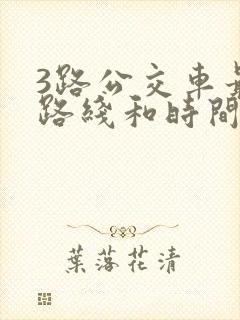 3路公交车
路綫和時間
葉落花清